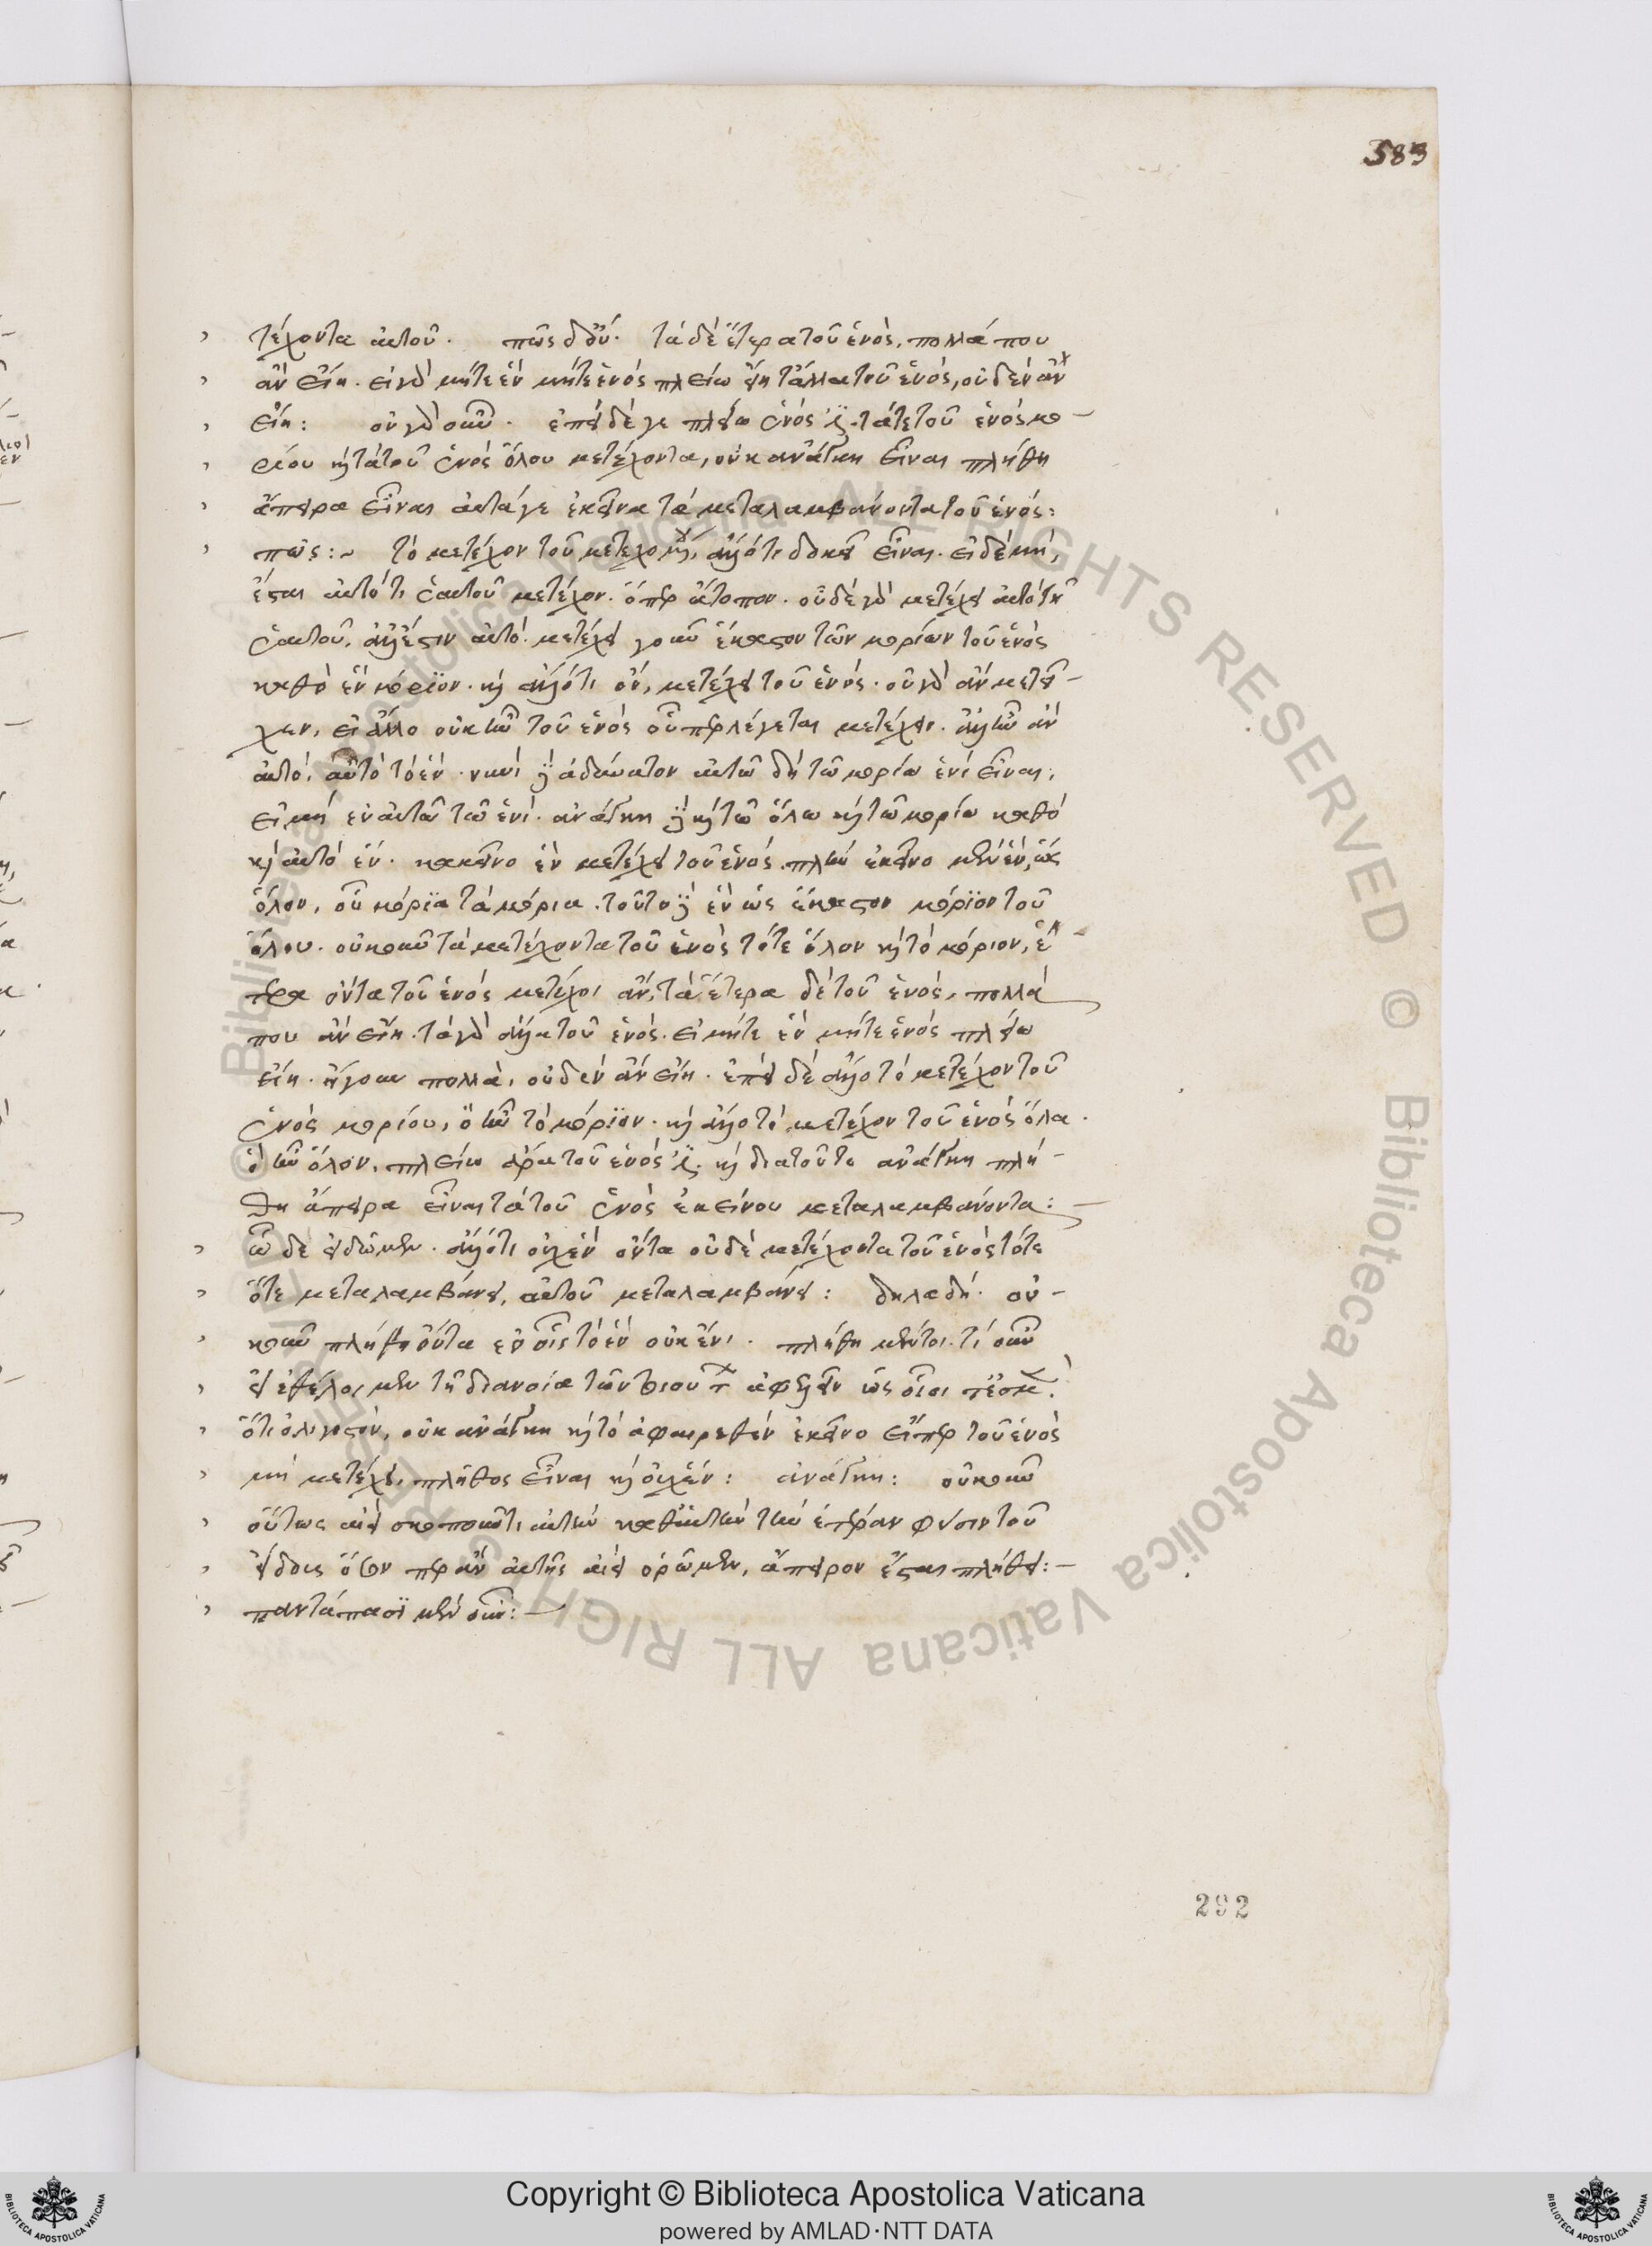 583
τέχοντα αὐτοῦ. πῶς δ' οὔ. τὰ δὲ ἕτερα τοῦ ἑνός, πολλά που
ἂν εἴη. εἰ γὰρ μήτε ἓν μήτε ἑνὸς πλείω εἴη τἆλλα τοῦ ἑνός, οὐδὲν ἂν
εἴη: οὐ γὰρ οὖν. ἐπεὶ δέ γε πλείω ἑνός ἐστι τά τε τοῦ ἑνὸς μο-
ρίου καὶ τὰ τοῦ ἑνὸς ὅλου μετέχοντα, οὐκ ἀνάγκη εἶναι πλήθη
ἄπειρα εἶναι αὐτά γε ἐκεῖνα τὰ μεταλαμβάνοντα τοῦ ἑνός:
πῶς: τὸ μετέχον τοῦ μετεχομένου, ἄλλό τι δοκεῖ εἶναι. εἰ δὲ μή,
ἔσται αὐτό τι ἑαυτοῦ μετέχον. ὅπερ ἄτοπον. οὐδὲ γὰρ μετέχει αὐτό τι
ἑαυτοῦ, ἀλλ' ἔστιν αὐτό. μετέχει γοῦν ἕκαστον τῶν μορίων τοῦ ἑνὸς
καθὸ ἓν μόριον. καὶ ἄλλό τι ὄν, μετέχει τοῦ ἑνός. οὐ γὰρ ἂν μετεῖ-
χεν, εἰ ἄλλο οὐκ ἦν τοῦ ἑνὸς οὗπερ λέγεται μετέχειν. ἀλλ' ἦν ἂν
αὐτό, αὐτὸ τὸ ἕν. νυνὶ δὲ ἀδύνατον αὐτῶ δὴ τῶ μορίω ἑνὶ εἶναι,
εἰ μὴ ἐν αὐτῶ τῶ ἑνί. ἀνάγκη δὲ καὶ τῶ ὅλω καὶ τῶ μορίω καθὸ
καὶ αὐτὸ ἕν. κακεῖνο ἓν μετέχει τοῦ ἑνός. πλὴν ἐκεῖνο μὲν ἕν, ὡς
ὅλον, οὗ μόρια τὰ μόρια. τοῦτο δὲ ἓν ὡς ἕκαστον μόριον τοῦ
ὅλου. οὐκοῦν τὰ μετέχοντα τοῦ ἑνὸς τό τε ὅλον καὶ τὸ μόριον, ἕ-
τερα ὄντα τοῦ ἑνὸς μετέχοι ἄν, τὰ ἕτερα δὲ τοῦ ἑνός, πολλά
που ἂν εἴη. τὰ γὰρ ἄλλα τοῦ ἑνός. εἰ μήτε ἓν μήτε ἑνὸς πλείω
εἴη. ἤγουν πολλά, οὐδὲν ἂν εἴη. ἐπεὶ δὲ ἄλλο τὸ μετέχον τοῦ
ἑνὸς μορίου, ὃ ἦν τὸ μόριον. καὶ ἄλλο τὸ μετέχον τοῦ ἑνὸς ὅλα.
ὃ ἦν ὅλον, πλείω ἄρα τοῦ ἑνός ἐστι. καὶ διατοῦτο ἀνάγκη πλή-
θη ἄπειρα εἶναι τὰ τοῦ ἑνὸς ἐκείνου μεταλαμβάνοντα:
ὧδε εἰδῶμεν. ἄλλό τι οὐχ ἓν ὄντα οὐδὲ μετέχοντα τοῦ ἑνὸς τότε
ὅτε μεταλαμβάνει, αὐτοῦ μεταλαμβάνει: δηλαδή. οὐ-
κοῦν πλήθη ὄντα ἐν οἷς τὸ ἓν οὐκ ἔνι. πλήθη μέντοι. τί οὖν
εἰ ἐθέλοιμεν τῆ διανοία τῶν τοιούτων ἀφελεῖν ὡς οἷοί τέ ἐσμεν
ὅτι ὀλίγιστον, οὐκ ἀνάγκη καὶ τὸ ἀφαιρεθὲν ἐκεῖνο εἴπερ τοῦ ἑνὸς
μὴ μετέχει, πλῆθος εἶναι καὶ οὐχ ἕν: ἀνάγκη: οὐκοῦν
οὕτως αἰεὶ σκοποῦντι αὐτὴν καθ' αὑτὴν τὴν ἑτέραν φύσιν τοῦ
εἴδους ὅσον περ ἂν αὐτῆς αἰεὶ ὁρῶμεν, ἄπειρον ἔσται πλήθει:
παντάπασι μὲν οὖν:
292
© Biblioteca Apostolica Vaticana ALL RIGHTS RESERVED © Biblioteca Apostolica Vaticana ALL RIGHTS RESERVED
Copyright © Biblioteca Apostolica Vaticana
powered by AMLAD·NTT DATA
BIBLIOTECA APOSTOLICA VATICANA
BIBLIOTECA APOSTOLICA VATICANA